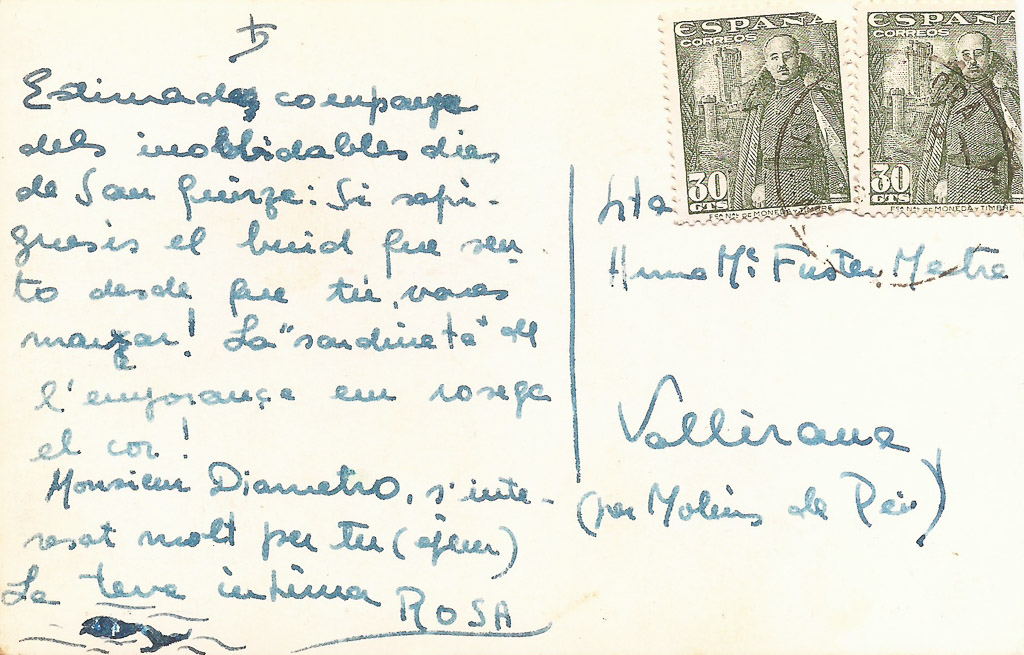 Estimada companya
dels inolbidables dies
de San Quirze: Si sapi-
guesis el buid que sen-
to desde que tu, vares
marxar! La "sardineta" de
l'enyorança em rosega
el cor!
Monsieur Diametro, s'inte-
resat molt per tu (ejem)
La teva intima ROSA
ESPAÑA
CORREOS
30
CTS
FCA NAL DE MONEDA Y TIMBRE
ESPAÑA
CORREOS
30
CTS
FCA NAL DE MONEDA Y TIMBRE
Srta
Anna Mª Fuster Mestre
Vallirana
(per Molins de Rei)